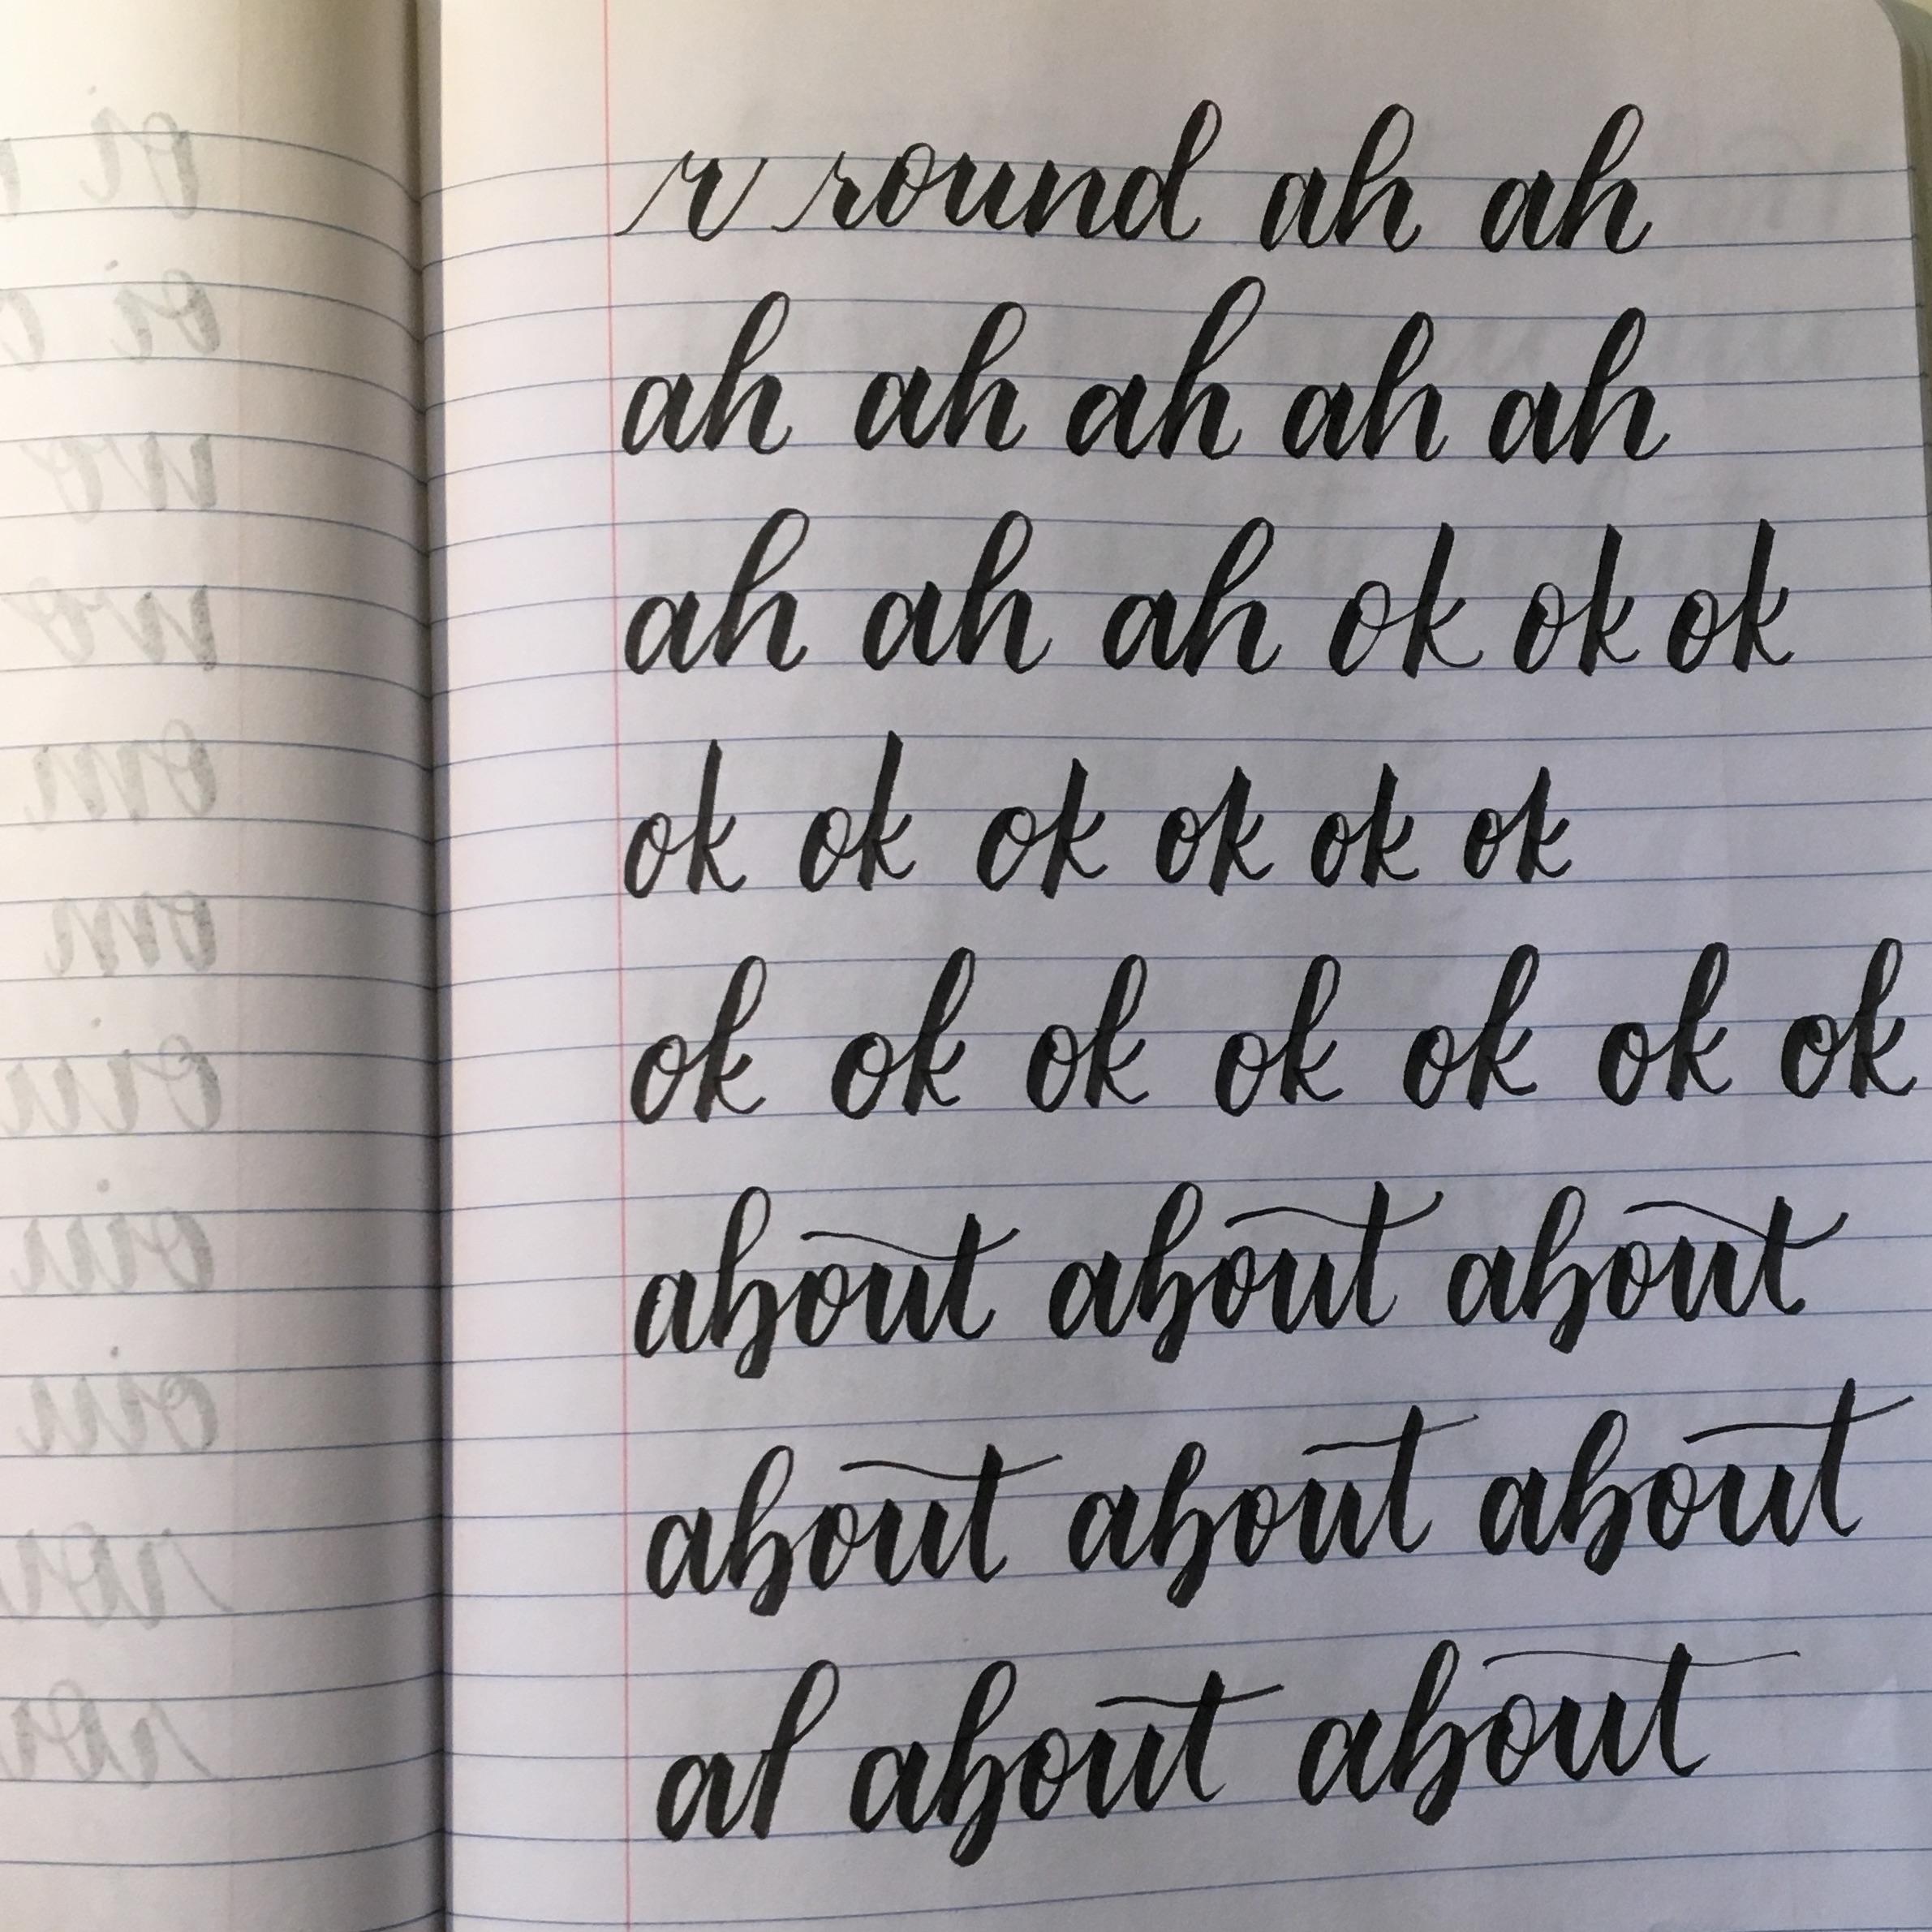 r round ah ah
ah ah ah ah ah
ah ah ah ok ok ok
ok ok ok ok ok ok
ok ok ok ok ok ok ok
about about about
about about about
al about about